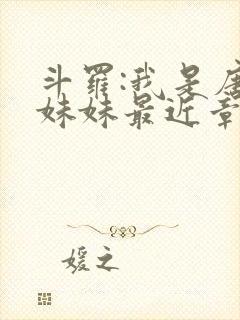 斗羅:我是唐
妹妹最近章
媛之